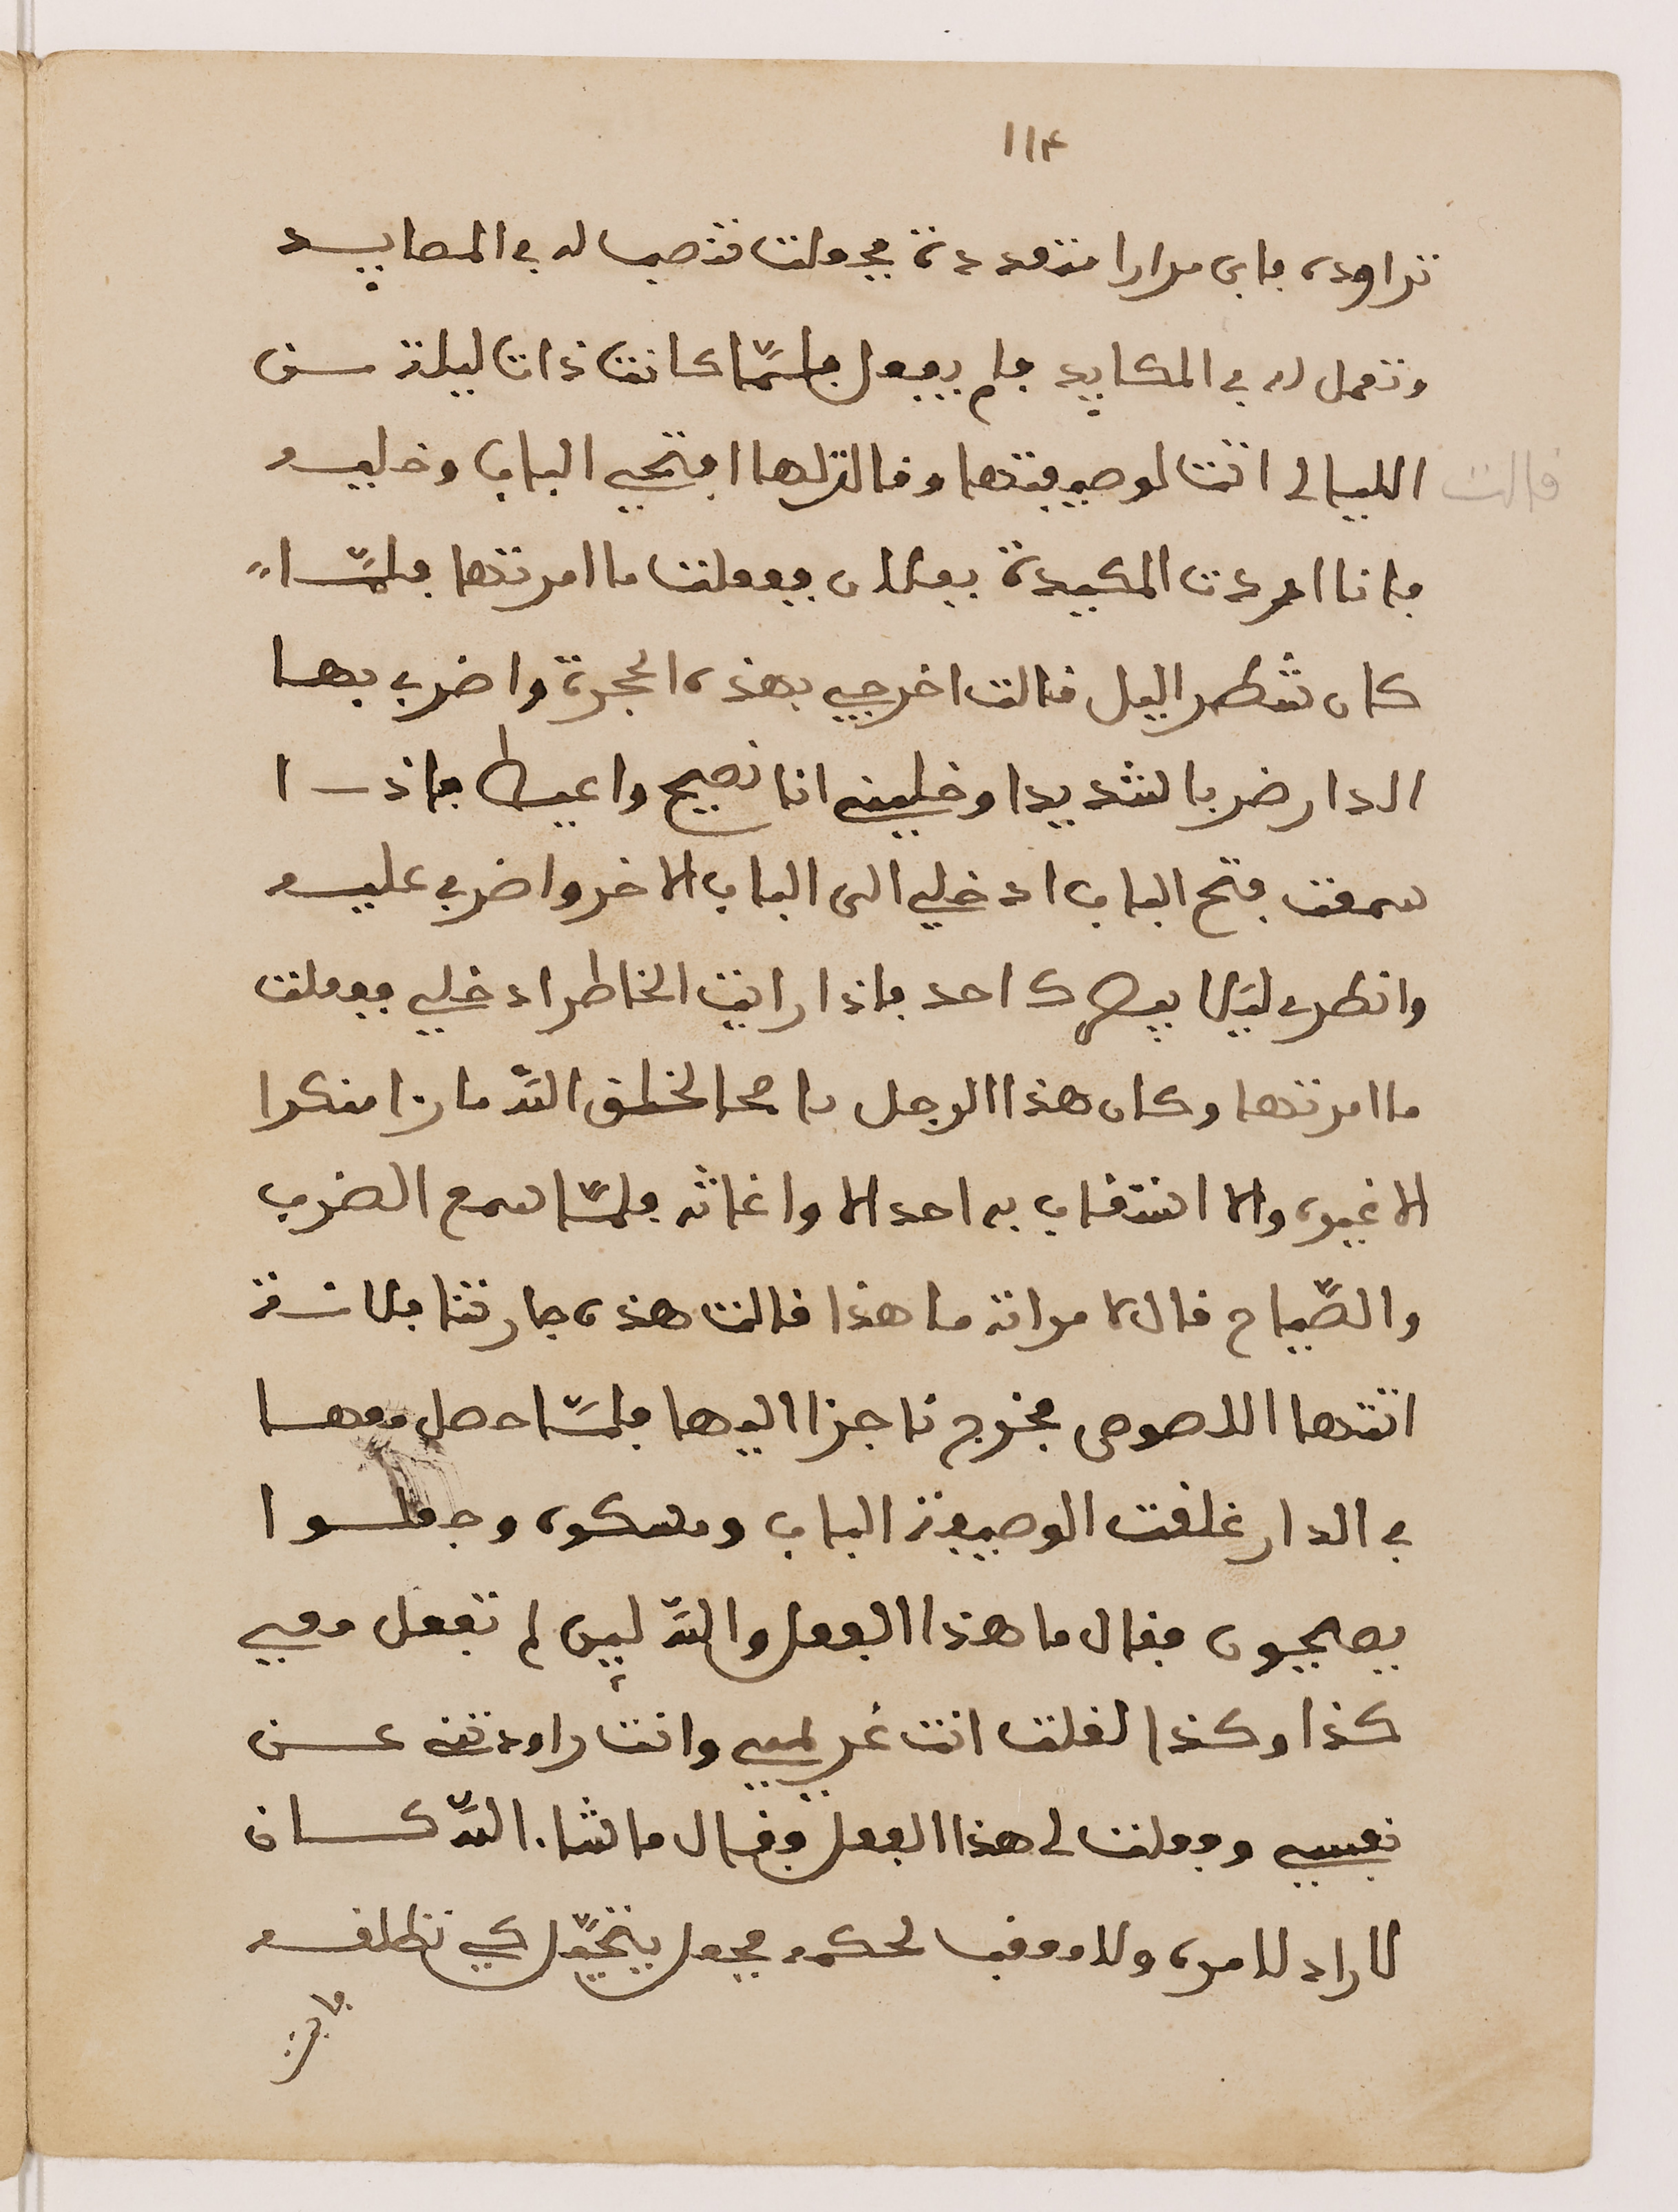 ١١٤
تراوده فابى مرارا متعددة فجعلت تنصب له في المصايد
وتعمل له في المكايد فلم يفعل فلمّا كانت ذات ليلة من
الليالى اتت لوصيفتها وقالتلها افتحي الباب وخليه
قالت
فانا اعددت المكيدة بفلان ففعلت ما امرتها فلمّا
كان شطر اليل قالت اخرجي بهذه الحجرة واضرب بها
الدار ضربا لشديدا وخليني انا نصيح واعيط فاذا
سمعت بفتح الباب ادخلي الى الباب الاخر واضرب عليه
وانظرى ليلا احد فاذا رايت الخاطر ادخلي ففعلت
ما امرتها وكان هذا الرجل ناصحا لخلق اللّه ما را منكرا
الا غيره والا استغاب به احد الا واغاثه فلمّا سمع الضرب
والصّياح قال لامراته ما هذا قالت هذه جارتنا فلانة
اتتها اللصوص فخرج ناجزا اليها فلمّا حصل معها
في الدار غلقت الوصيفة الباب ومسكوه وجعلوا
يصيحون فقال ما هذا الفعل واللّه لين لم تفعل معي
كذا وكذا لقلت انت غريمي وانت راودتني عن
نفسي وفعلت لى هذا الفعل فقال ما شاء اللّه كان
لا راد لامره ولا معقب لحكمه فجعل يتخيّل كي تطلقه
فابت